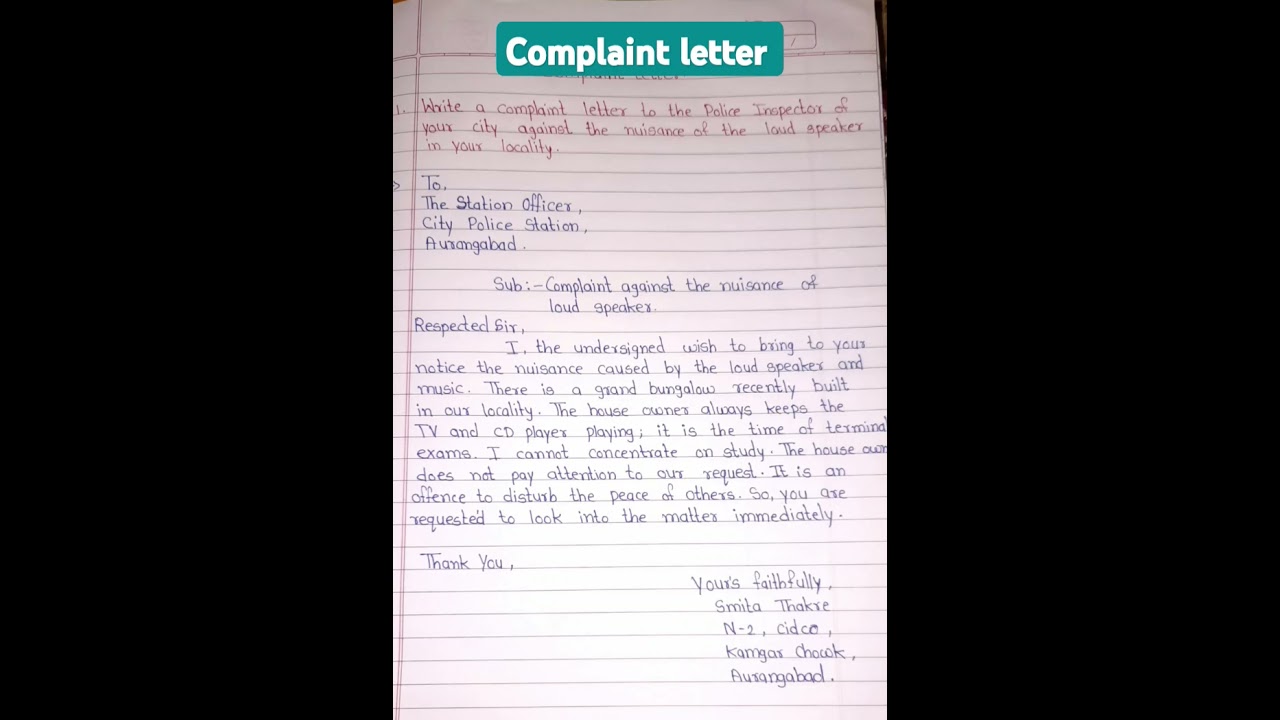 Complaint letter
1. Write a complaint letter to the Police Inspector of
your city against the nuisance of the loud speaker
in your locality.
To,
The Station Officer,
City Police Station,
Aurangabad.
Sub:- Complaint against the nuisance of
loud speaker.
Respected Sir,
I, the undersigned wish to bring to your
notice the nuisance caused by the loud speaker and
music. There is a grand bungalow recently built
in our locality. The house owner always keeps the
TV and CD player playing; it is the time of terminal
exams. I cannot concentrate on study. The house own
does not pay attention to our request. It is an
offence to disturb the peace of others. So, you are
requested to look into the matter immediately.
Thank You,
Your's faithfully,
Smita Thakre
N-2, Cidco,
Kamgar Chowk,
Aurangabad.